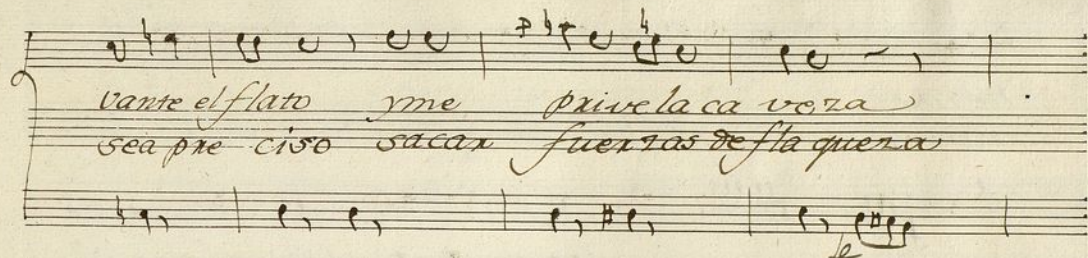 vante el flato yme prive la ca veza
sea pre ciso sacar fuerzas de fla queza